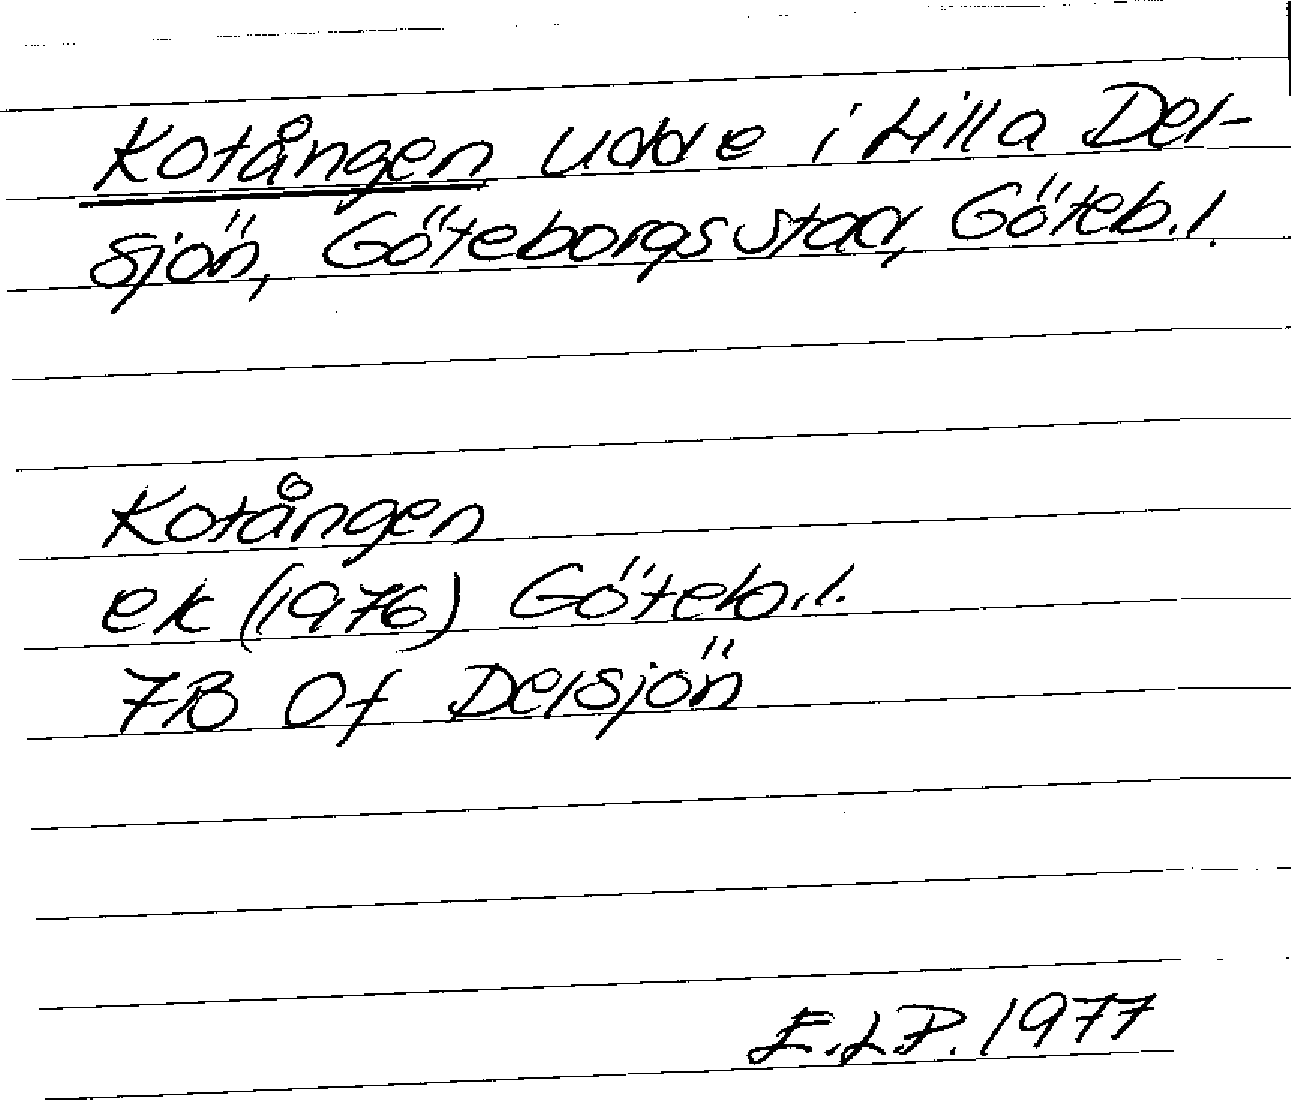 Kotången udde i Lilla Del-
sjön, Göteborgs stad, Göteb.l.
Kotången
ek (1976) Göteb.l.
7B 0f Delsjön
E.L.P. 1977